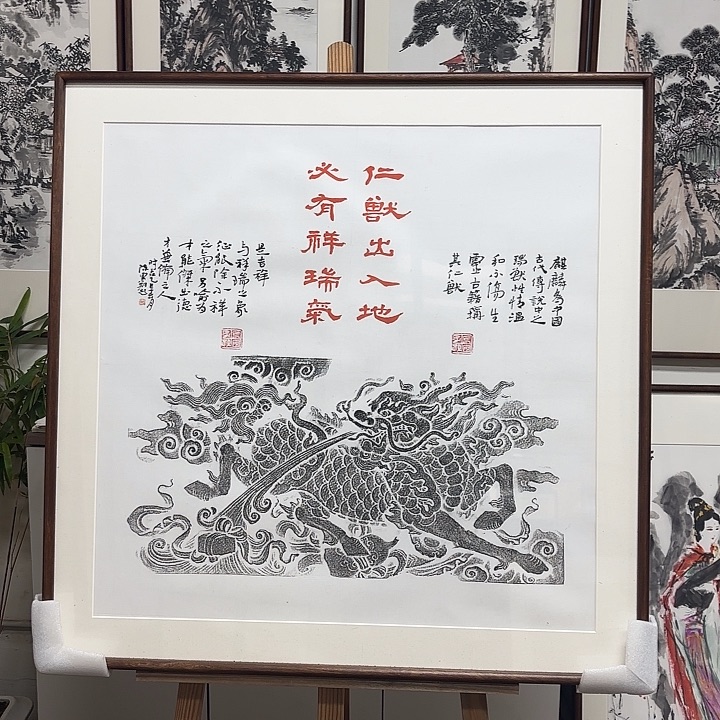 仁獸出入地
必有祥瑞氣
麒麟為中國
古代傳說中之
瑞獸性情溫
和不傷生
靈古籍稱
其仁獸
是吉祥
与祥瑞之象
征能除不祥
之氣
才能傑出德
才兼備之人